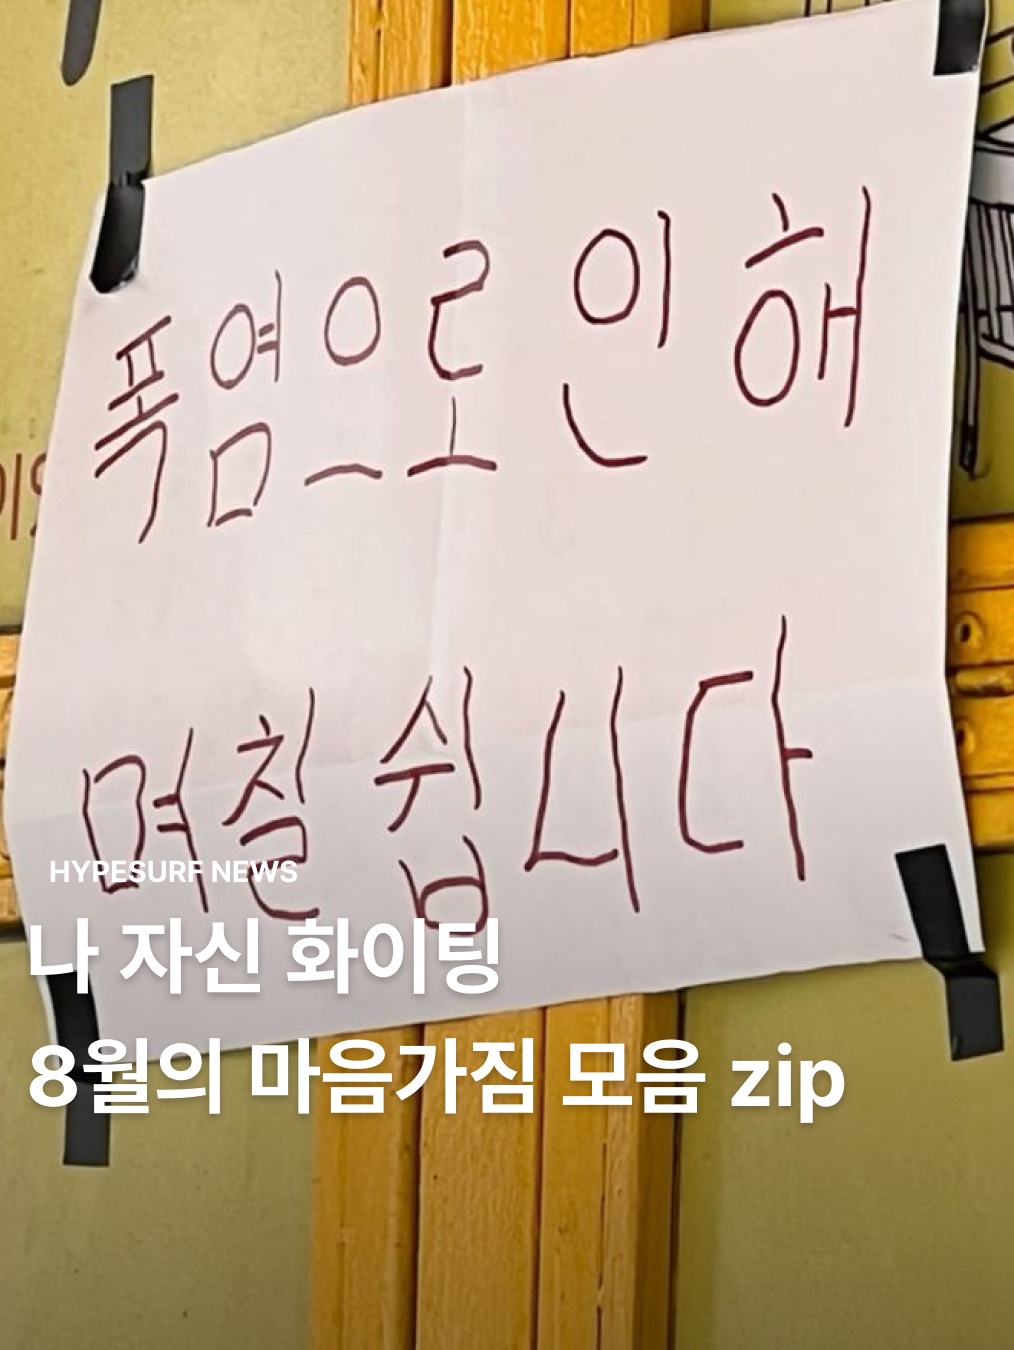 폭염으로 인해
며칠 쉽니다
HYPESURF NEWS
나 자신 화이팅
8월의 마음가짐 모음 zip